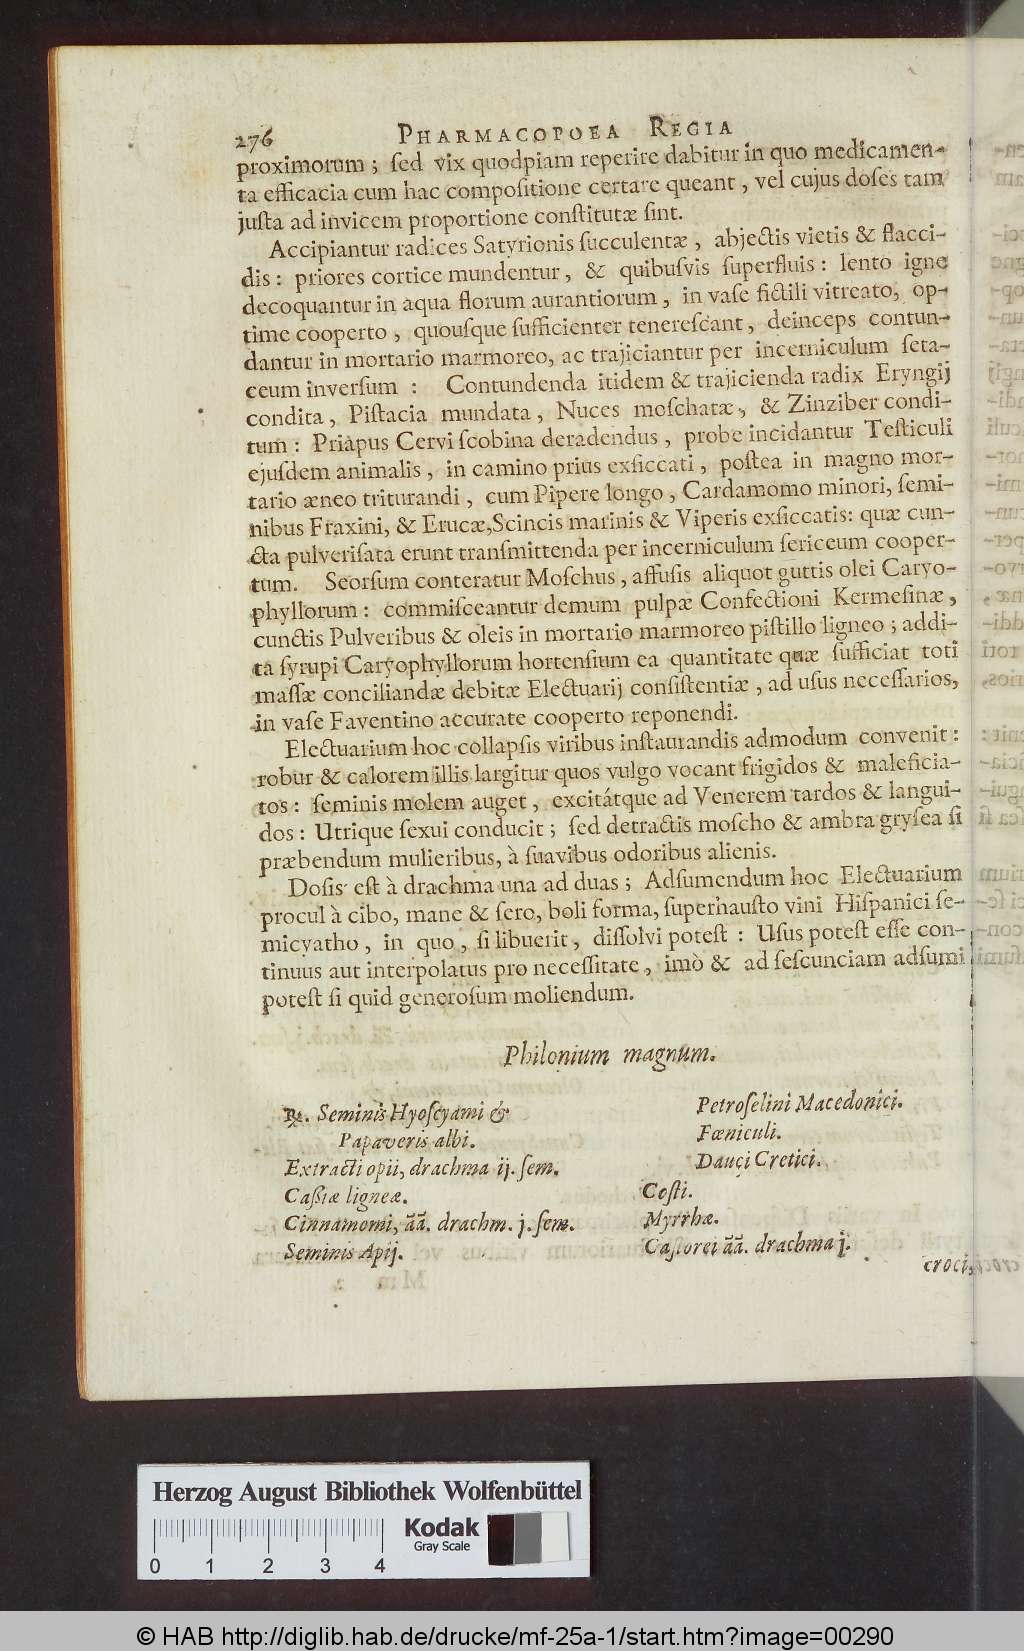 276 PHARMACOPOEA REGIA
proximorum ; ſed vix quodpiam reperire dabitur in quo medicamen-
ta efficacia cum hac compoſitione certare queant , vel cujus doſes tam
juſta ad invicem proportione conſtitutæ ſint.
Accipiantur radices Satyrionis ſucculentæ , abjectis vietis & flacci-
dis : priores cortice mundentur , & quibuſvis ſuperfluis : lento igne
decoquantur in aqua florum aurantiorum , in vaſe fictili vitreato, op-
time cooperto , quouſque ſufficienter tenereſcant , deinceps contun-
dantur in mortario marmoreo, ac trajiciantur per incerniculum ſeta-
ceum inverſum : Contundenda itidem & trajicienda radix Eryngij
condita , Piſtacia mundata , Nuces moſchatæ , & Zinziber condi-
tum : Priapus Cervi ſcobina deradendus , probe incidantur Teſticuli
ejuſdem animalis , in camino prius exſiccati , poſtea in magno mor-
tario æneo triturandi , cum Pipere longo , Cardamomo minori, ſemi-
nibus Fraxini, & Erucæ,Scincis marinis & Viperis exſiccatis: quæ cun-
cta pulveriſata erunt tranſmittenda per incerniculum ſericeum cooper-
tum. Seorſum conteratur Moſchus , affuſis aliquot guttis olei Caryo-
phyllorum : commiſceantur demum pulpæ Confectioni Kermeſinæ ,
cunctis Pulveribus & oleis in mortario marmoreo piſtillo ligneo ; addi-
ta ſyrupi Caryophyllorum hortenſium ea quantitate quæ ſufficiat toti
maſſæ conciliandæ debitæ Electuarij conſiſtentiæ , ad uſus neceſſarios,
in vaſe Faventino accurate cooperto reponendi.
Electuarium hoc collapſis viribus inſtaurandis admodum convenit :
robur & calorem illis largitur quos vulgo vocant frigidos & maleficia-
tos : ſeminis molem auget , excitátque ad Venerem tardos & langui-
dos : Utrique ſexui conducit ; ſed detractis moſcho & ambra gryſea ſi
præbendum mulieribus, à ſuavibus odoribus alienis.
Doſis est à drachma una ad duas ; Adſumendum hoc Electuarium
procul à cibo, mane & ſero, boli forma, ſuperhauſto vini Hiſpanici ſe-
micyatho , in quo , ſi libuerit , diſſolvi poteſt : Uſus poteſt eſſe con-
tinuus aut interpolatus pro neceſſitate , imò & ad ſeſcunciam adſumi
poteſt ſi quid generoſum moliendum.
Philonium magnum.
℞. Seminis Hyoſcyami &
Papaveris albi.
Extracti opii, drachma ij. ſem.
Caßiæ ligneæ.
Cinnamomi, ãã. drachm. j. ſem.
Seminis Apij.
Petroſelini Macedonici.
Fœniculi.
Dauci Cretici.
Coſti.
Myrrhæ.
Caſtorei ãã. drachma j.
croci,
Herzog August Bibliothek Wolfenbüttel
0 1 2 3 4
Kodak
Gray Scale
© HAB http://diglib.hab.de/drucke/mf-25a-1/start.htm?image=00290